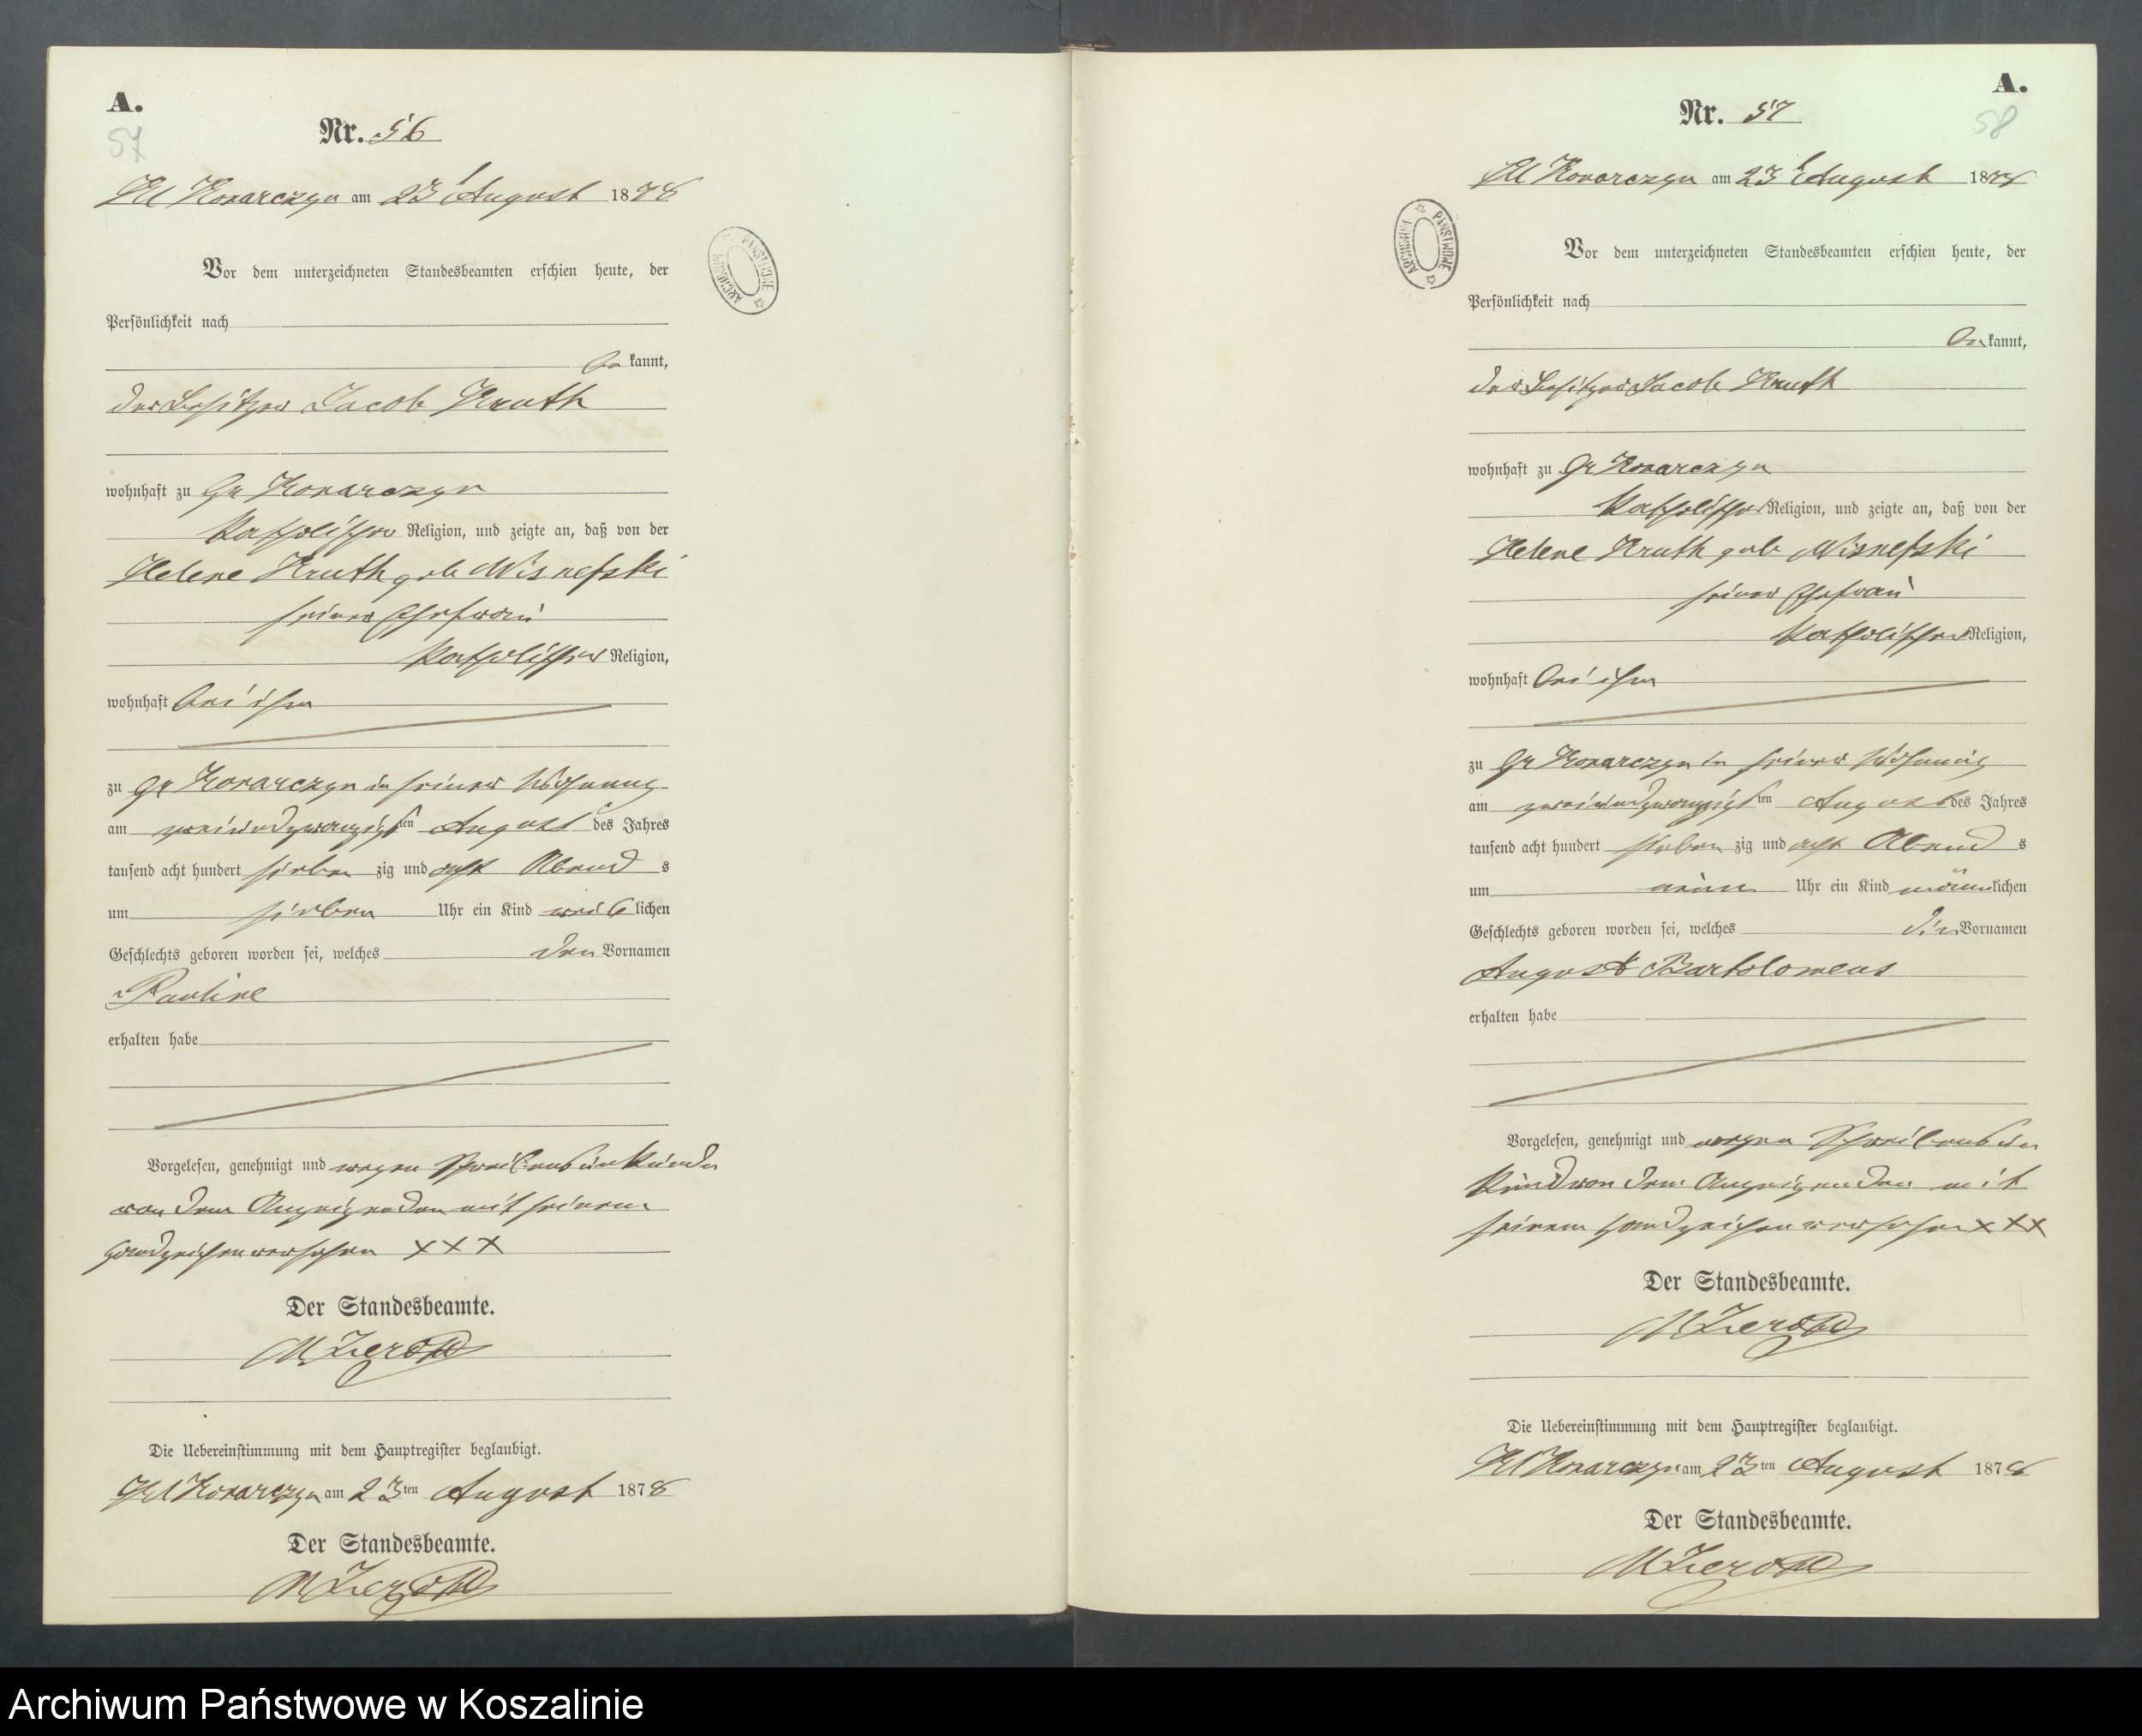 A.
57
Nr. 56
Kl Konarczyn am 23t August 1878
Vor dem unterzeichneten Standesbeamten erschien heute, der
Persönlichkeit nach
be kannt,
der Besitzer Jacob Kruth
wohnhaft zu Gr Konarczyn
katholischer Religion, und zeigte an, daß von der
Helene Kruth geb Wisnefski
seiner Ehefrau
katholischer Religion,
wohnhaft bei ihm
zu Gr Konarczyn in seiner Wohnung
am zweiundzwanzigsten August des Jahres
tausend acht hundert sieben zig und acht Abend s
um sieben Uhr ein Kind weib lichen
Geschlechts geboren worden sei, welches den Vornamen
Pauline
erhalten habe
Vorgelesen, genehmigt und wegen Schreibensunkunde
von dem Anzeigenden mit seinem
Handzeichen versehen XXX
Der Standesbeamte.
Die Uebereinstimmung mit dem Hauptregister beglaubigt.
Kl Konarczyn am 23ten August 1878
Der Standesbeamte.
A.
58
Nr. 57
Kl Konarczyn am 23t August 1878
Vor dem unterzeichneten Standesbeamten erschien heute, der
Persönlichkeit nach
be kannt,
der Besitzer Jacob Kruth
wohnhaft zu Gr Konarczyn
katholischer Religion, und zeigte an, daß von der
Helene Kruth geb Wisnefski
seiner Ehefrau
katholischer Religion,
wohnhaft bei ihm
zu Gr Konarczyn in seiner Wohnung
am zweiundzwanzigsten August des Jahres
tausend acht hundert sieben zig und acht Abend s
um neun Uhr ein Kind männlichen
Geschlechts geboren worden sei, welches die Vornamen
August Bartolomeus
erhalten habe
Vorgelesen, genehmigt und wegen Schreibensun
kund von dem Anzeigenden mit
seinem Handzeichen versehen XXX
Der Standesbeamte.
Die Uebereinstimmung mit dem Hauptregister beglaubigt.
Kl Konarczyn am 23ten August 1878
Der Standesbeamte.
ARCHIWUM PAŃSTWOWE
ARCHIWUM PAŃSTWOWE
Archiwum Państwowe w Koszalinie